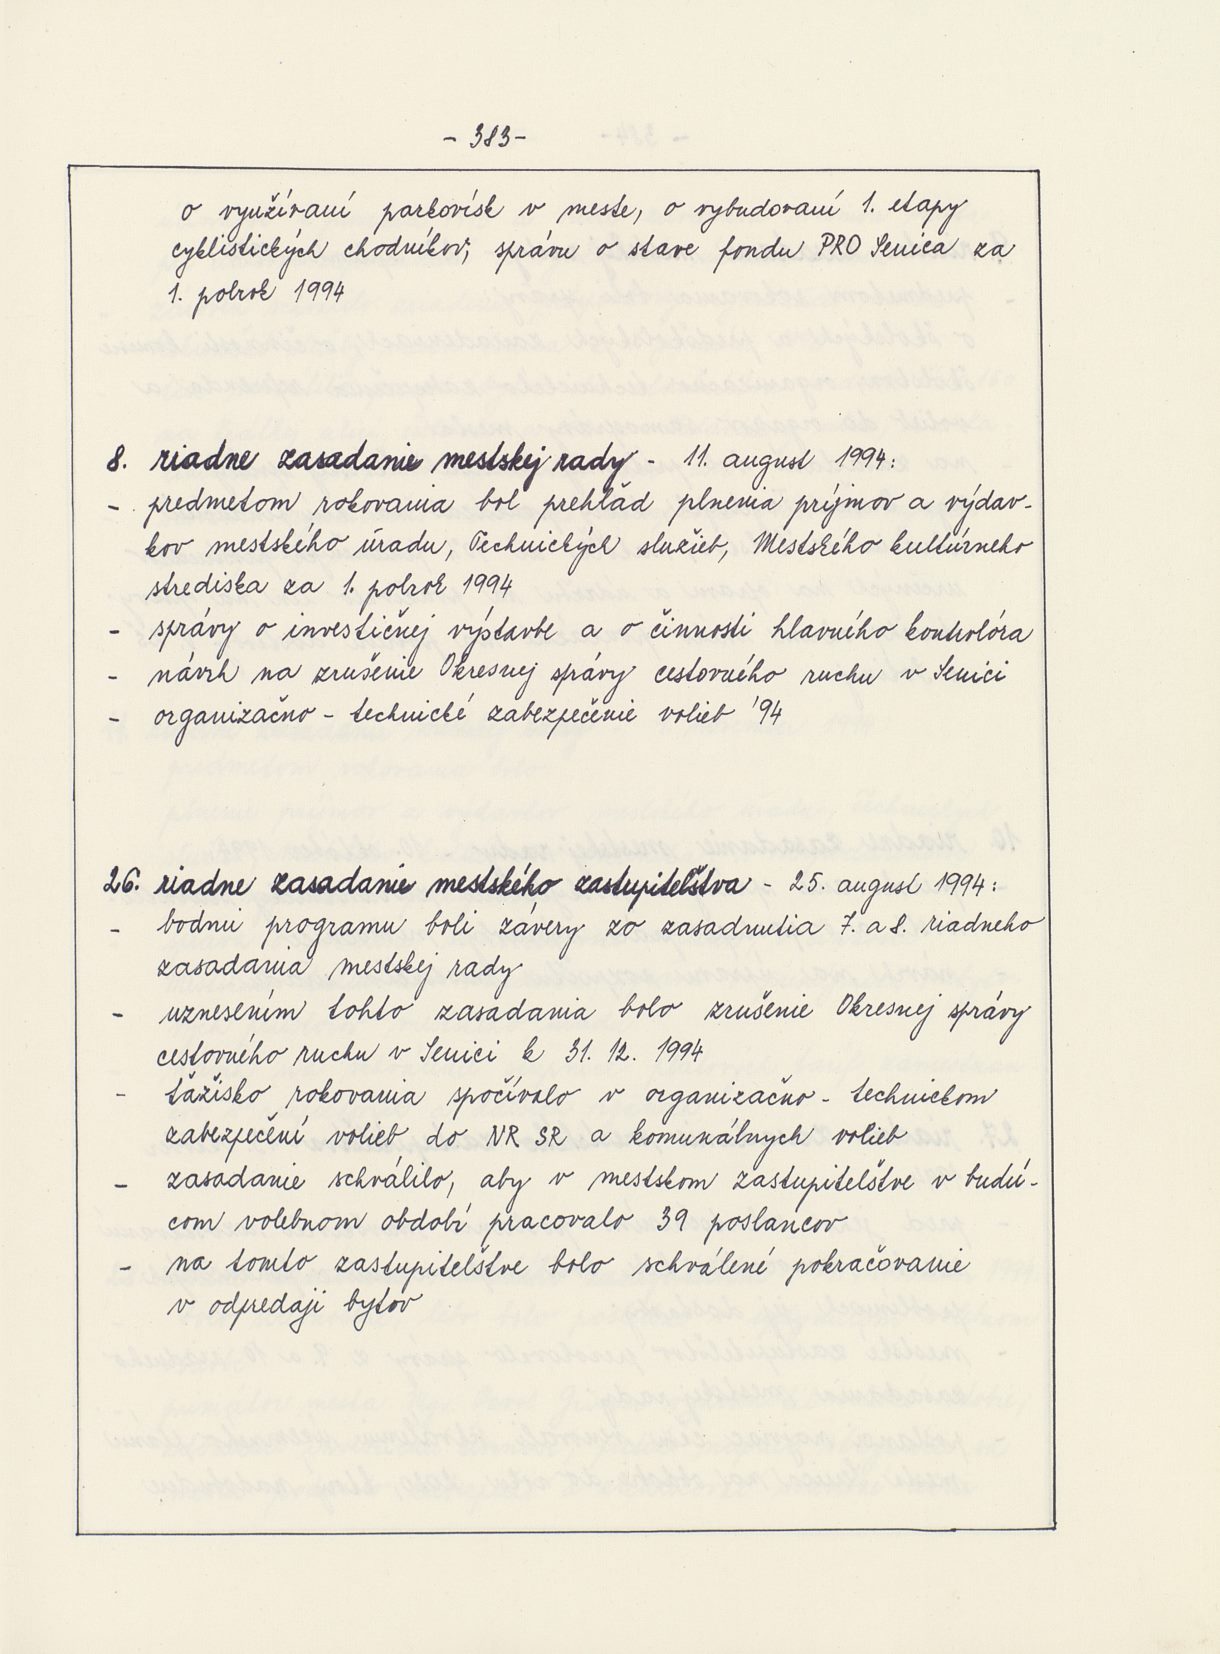 - 383 -
o využívaní parkovísk v meste, o vybudovaní 1. etapy
cyklistických chodníkov; správu o stave fondu PRO Senica za
1. polrok 1994
8. riadne zasadanie mestskej rady - 11. august 1994:
- predmetom rokovania bol prehľad plnenia príjmov a výdav-
kov mestského úradu, Technických služieb, Mestského kultúrneho
strediska za 1. polrok 1994
- správy o investičnej výstavbe a o činnosti hlavného kontrolóra
- návrh na zrušenie Okresnej správy cestovného ruchu v Senici
- organizačno - technické zabezpečenie volieb '94
26. riadne zasadanie mestského zastupiteľstva - 25. august 1994:
- bodmi programu boli závery zo zasadnutia 7. a 8. riadneho
zasadania mestskej rady
- uznesením tohto zasadania bolo zrušenie Okresnej správy
cestovného ruchu v Senici k 31. 12. 1994
- ťažisko rokovania spočívalo v organizačno - technickom
zabezpečení volieb do NR SR a komunálnych volieb
- zasadanie schválilo, aby v mestskom zastupiteľstve v budú-
com volebnom období pracovalo 39 poslancov
- na tomto zastupiteľstve bolo schválené pokračovanie
v odpredaji bytov